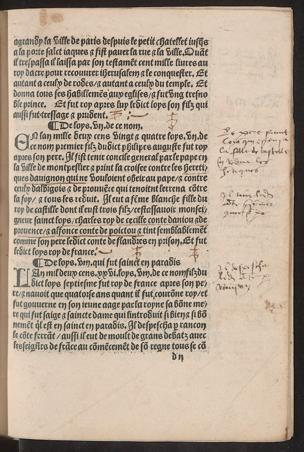 agrandy la ville de paris despuis le petit chastellet iusqs
a la porte saict iaques z fist pauer la rue z la ville. Quāt
il trespassa il laissa par son testamēt cent mille liures au
roy dacre pour recouurer iherusalem z le conquester. Et
autant a ceuly de rodes/z autant a ceuly du temple. Et
donna tous ses habillemēs auy eglises/z fut vng tresno
ble prince. Et fut roy apres luy ledict loys son filz qui
aussi fut tressage z prudent.
De loys, vii, de ce nom.
EN lan mille deuy cens vingt z quatre loys, vii, de
ce nom premier filz dudict philipes auguste fut roy
apres son pere. Il fist tenir concile general par le pape en
la ville de montpeslier z print la croisee contre les hereti
ques dauignon qui ne vouloient obeir au pape/z contre
ceuly dalbigois z de prouuēce qui tenoient leur erreur cōtre
la foy/z tous les reduit. Il eut a fēme blanche fille du
roy de castille dont il eust trois filz/cestassauoir monsei
gneur sainct loys/charles roy de cecille conte daniou z de
prouence/z alfonce conte de poictou z tint semblablemēt
comme son pere ledict conte de flandres en prison, Et fut
ledict loys roy de france.
De loys, vii, qui fut sainct en paradis
LAn mil deuy cens, xx vi, loys, vii, de ce nom filz du
dict loys septiesme fut roy de france apres son pe-
re/z nauoit que quatorse ans quant il fut courōne roy/et
fut gouuerne en son ieune aage par la royne sa bōne me
re qui fut saige z saincte dame qui lintroduit si biens si bō
nemēt ql est en sainct en paradis. Il despescha p rancon
le cōte ferrāt/aussi il eut de moult de grans debatz auec
les seignrs de frāce au cōmēcemēt de sō regne tous se cō
d ii